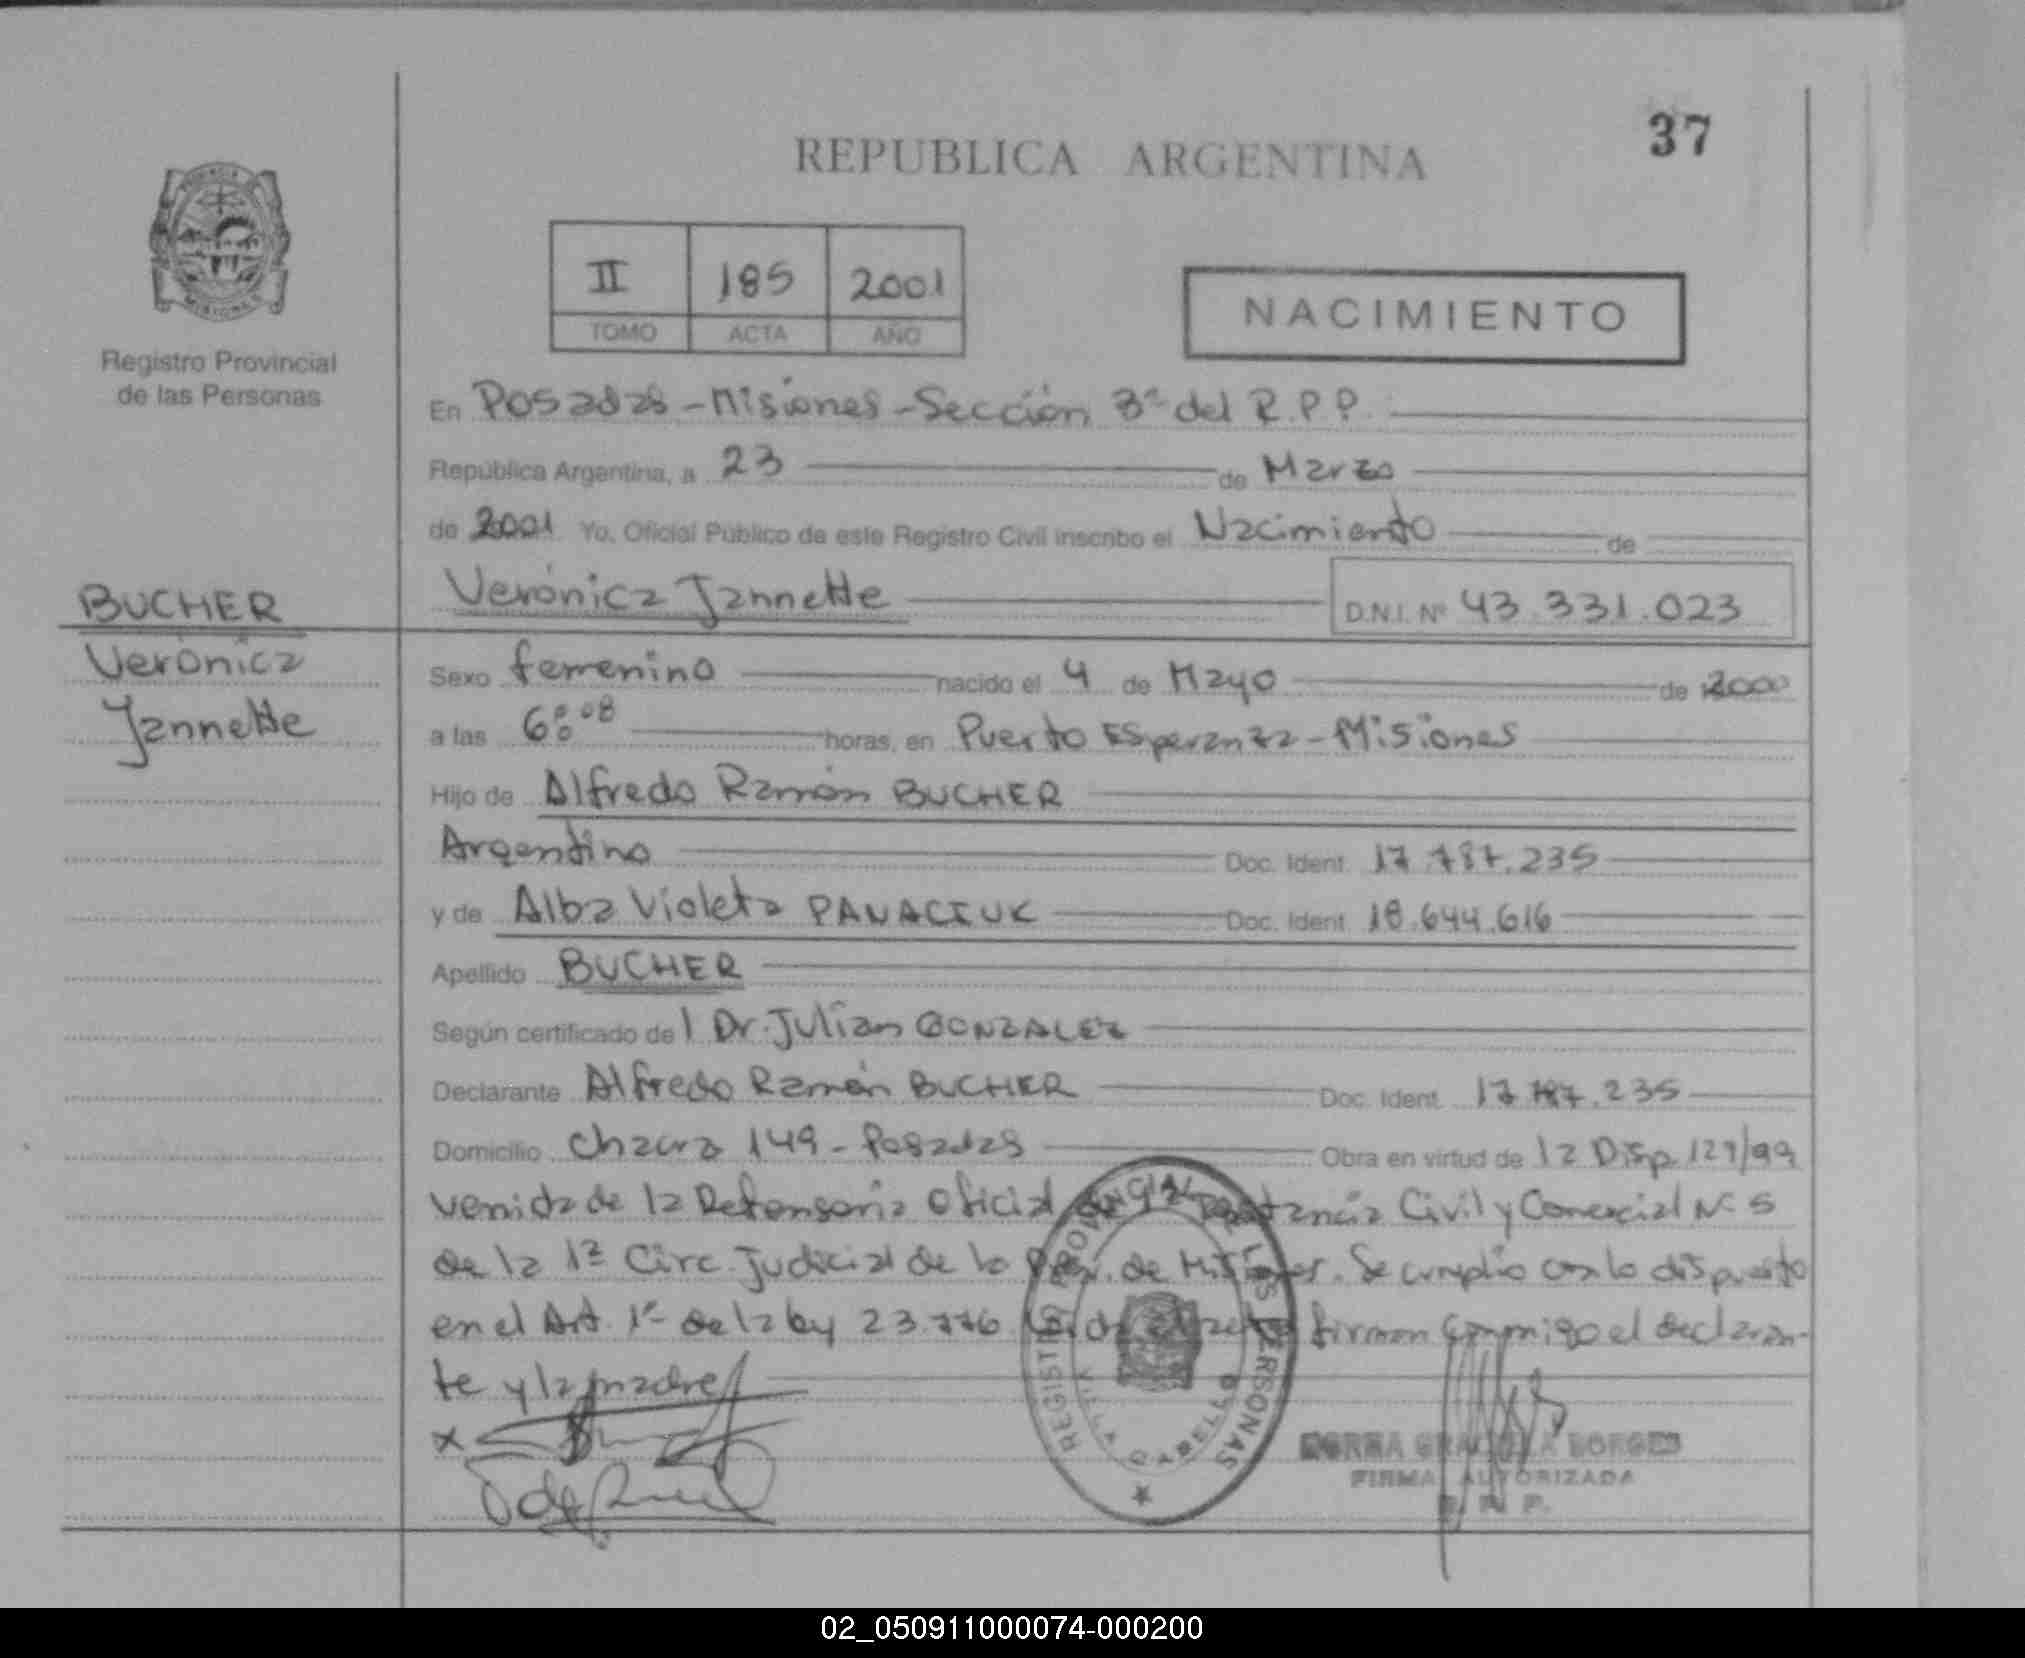 37
REPUBLICA ARGENTINA
II 185 2001
TOMO ACTA AÑO
NACIMIENTO
Registro Provincial
de las Personas
En Posadas - Misiones - Sección 3ª del R.P.P.
República Argentina, a 23 de Marzo
de 2001 Yo, Oficial Público de este Registro Civil inscribo el Nacimiento de
Verónica Jannette D.N.I. Nº 43.331.023
BUCHER
Verónica
Jannette
Sexo femenino nacido el 4 de Mayo de 2000
a las 6:08 horas, en Puerto Esperanza - Misiones
Hijo de Alfredo Ramón BUCHER
Argentino Doc. Ident. 17.787.235
y de Alba Violeta PANACIUK Doc. Ident. 18.644.616
Apellido BUCHER
Según certificado del Dr. Julian GONZALEZ
Declarante Alfredo Ramón BUCHER Doc. Ident. 17.787.235
Domicilio Chacra 149 - Posadas Obra en virtud de la Disp. 127/99
venida de la Defensoria Oficial de Instancia Civil y Comercial Nº 5
de la 1ª Circ. Judicial de la Prov. de Misiones. Se cumplio con lo dispuesto
en el Art. 1º de la ley 23.776 firman conmigo el declaran-
te y la madre
REGISTRO PROVINCIAL DE LAS PERSONAS
VILLA CABELLO
NORMA GRACIELA BORGES
FIRMA AUTORIZADA
R. P. P.
02_050911000074-000200